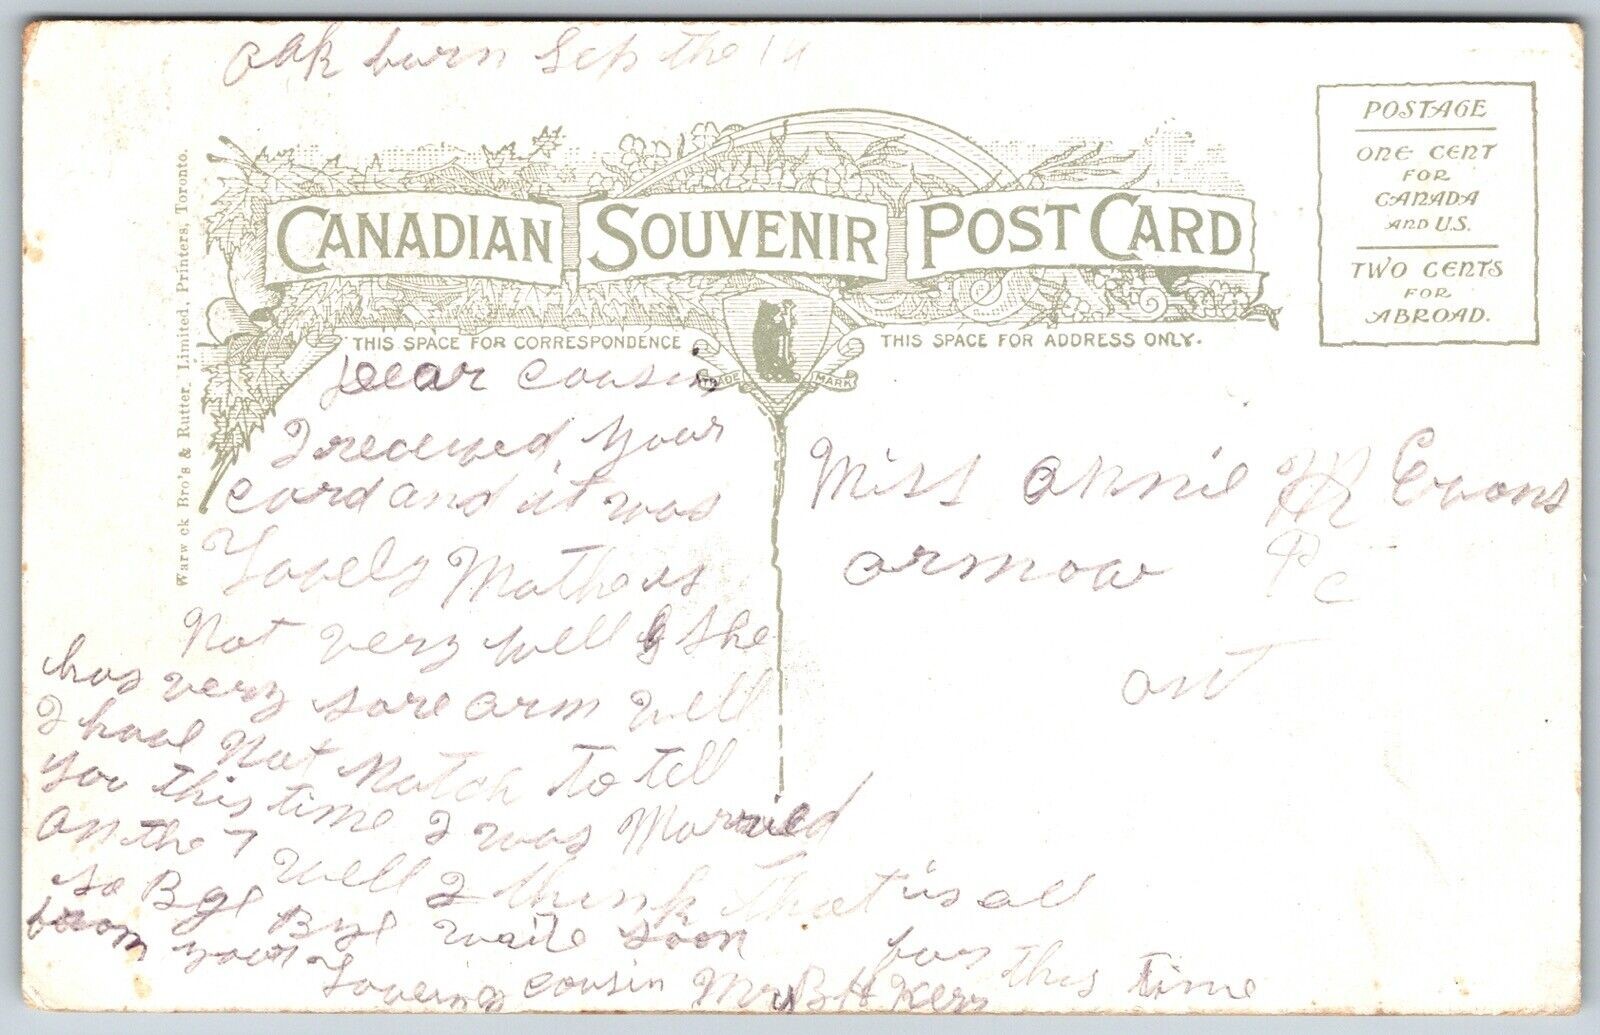 oak burn Sep the 14
CANADIAN SOUVENIR POST CARD
POSTAGE
ONE CENT
FOR
CANADA
AND U.S.
TWO CENTS
FOR
ABROAD.
Warwick Bro's & Rutter, Limited, Printers, Toronto.
THIS SPACE FOR CORRESPONDENCE
THIS SPACE FOR ADDRESS ONLY.
TRADE MARK
Dear cousin
I received your
card and it was
Lovely Mother is
Not very well & she
has very sore arm well
I have Not Match To tell
you this time I was Married
on the 7 well I think That is all
for this time
so Bye Bye waite soon
from your Loveing cousin Mrs B H Kerr
Miss annie M Evans
armow P C
ont